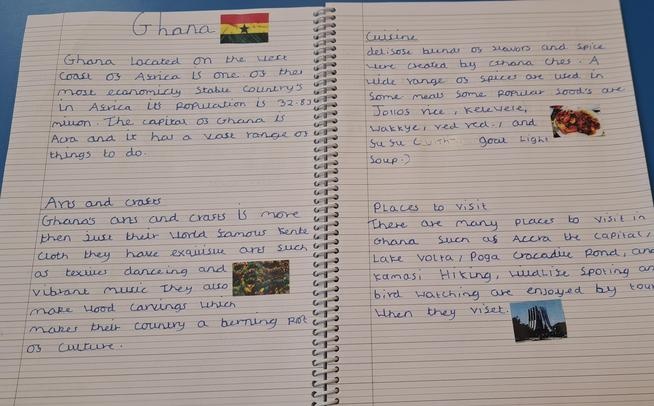 Ghana
Ghana located on the west
coast of Africa is one of the
most economicly stable country's
in Africa its population is 32.83
milion. The capital of Ghana is
Acra and it has a vast range of
things to do.
Arts and crafts
Ghana's arts and crafts is more
then just their world famous kente
cloth they have exquisue arts such
as texties danceing and
vibrant music They also
make wood carvings which
makes their country a berning pot
of culture.
Cuisine
delisose blends of flavors and spice
were created by Ghana ches. A
wide range of spices are used in
some meals some popular food's are
Jollos rice, kelevele,
wakkye, red red., and
fu fu (with goat light
soup.)
Places to visit
There are many places to visit in
Ghana such as Accra the capital,
Lake volta, Poga Crocadile Pond, and
kamasi Hiking, wildlife spoting an
bird watching are enjoyed by tour
when they viset.